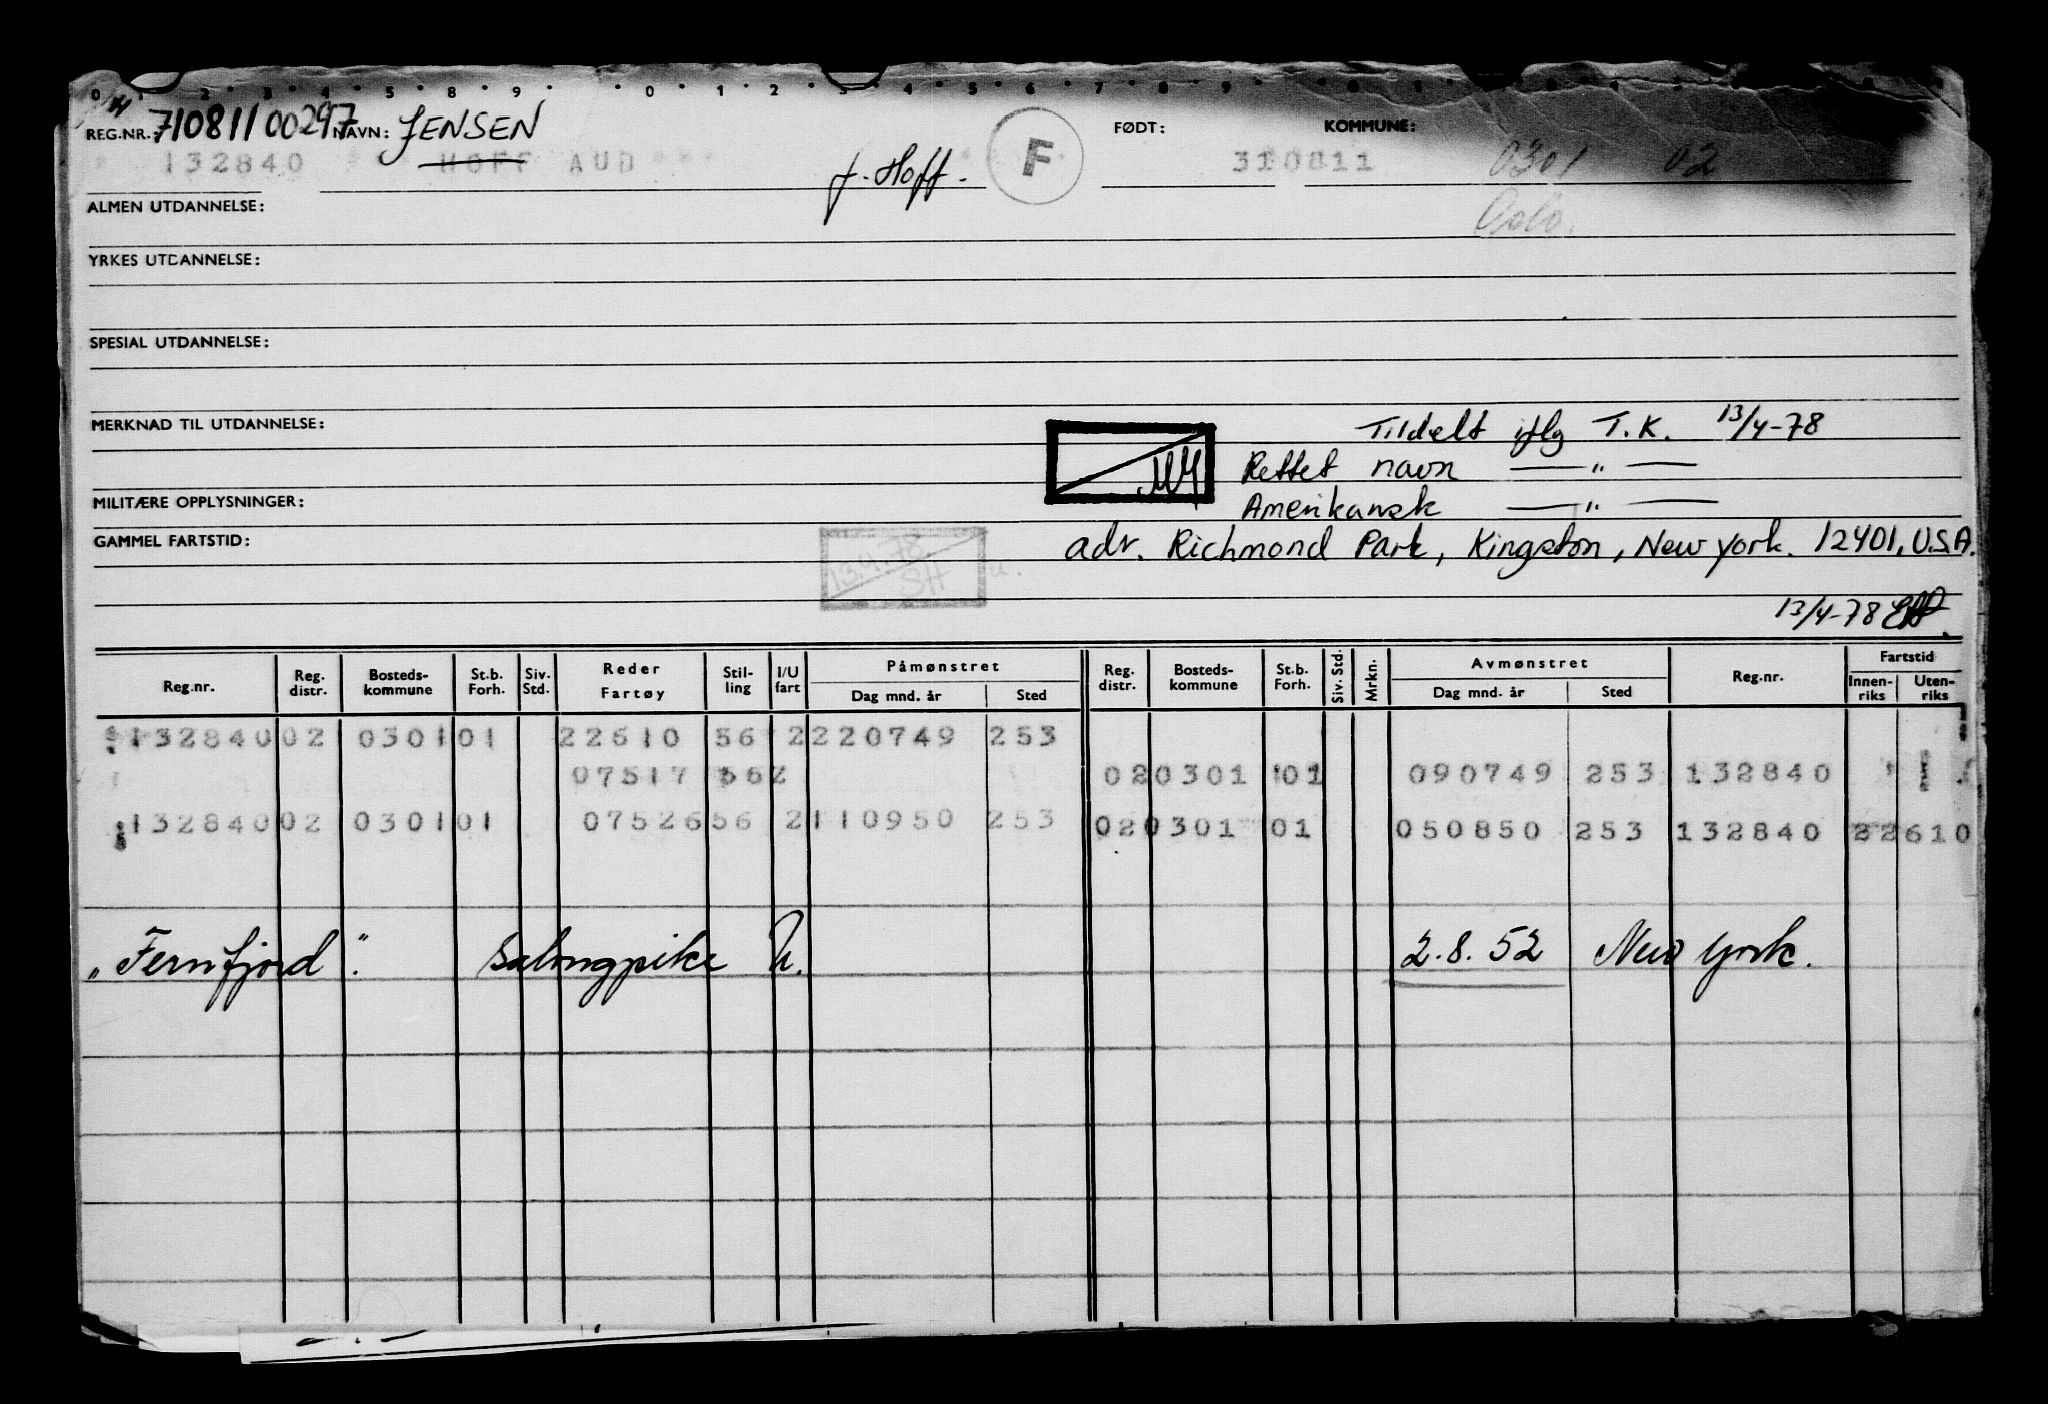 0 1 2 3 5 8 9 0 1 2 3 4 5 6 7 8 9
REG.NR.: 71081100297 NAVN: JENSEN FØDT: KOMMUNE:
132840 HOFF AUD f. Hoff. F 310811 0301 02
ALMEN UTDANNELSE: Oslo.
YRKES UTDANNELSE:
SPESIAL UTDANNELSE:
MERKNAD TIL UTDANNELSE: Tildelt iflg T.K. 13/4-78
Rettet navn — " —
MILITÆRE OPPLYSNINGER: Amerikansk — " —
GAMMEL FARTSTID: adr. Richmond Park, Kingston, New York. 12401, U.S.A.
13.4.78 SH
13/4-78
Reg.nr. Reg. distr. Bosteds-kommune St.b. Forh. Siv. Std. Reder Fartøy Stil-ling I/U fart Påmønstret Dag mnd. år Sted Reg. distr. Bosteds-kommune St.b. Forh. Siv. Std. Mrkn. Avmønstret Dag mnd. år Sted Reg.nr. Fartstid Innen-riks Uten-riks
132840 02 0301 01 22610 56 2 220749 253
07517 56 2 02 0301 01 090749 253 132840
132840 02 0301 01 07526 56 2 110950 253 02 0301 01 050850 253 132840 22610
"Fernfjord". Salongpike U. 2.8.52 New York.